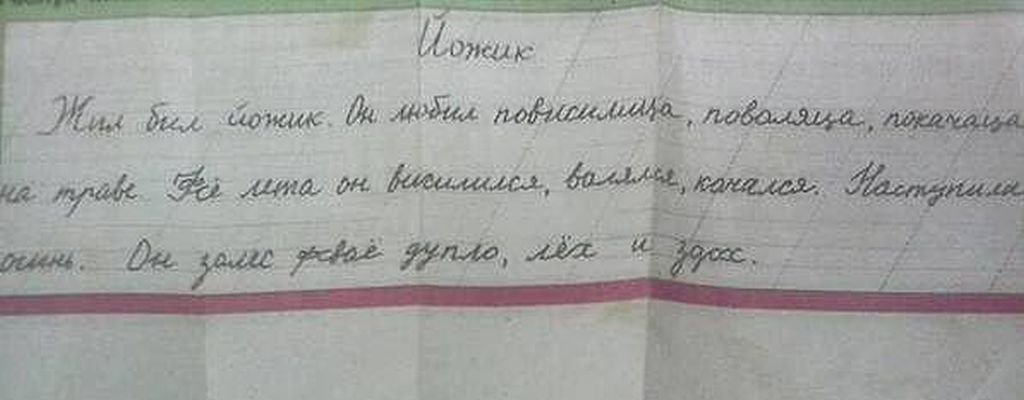 Йожик
Жил был йожик. Он любил повисилица, поволяца, покачаца
на траве. Фсё лета он висилился, волялся, качался. Наступила
осинь. Он залес фсваё дупло, лёх и здох.